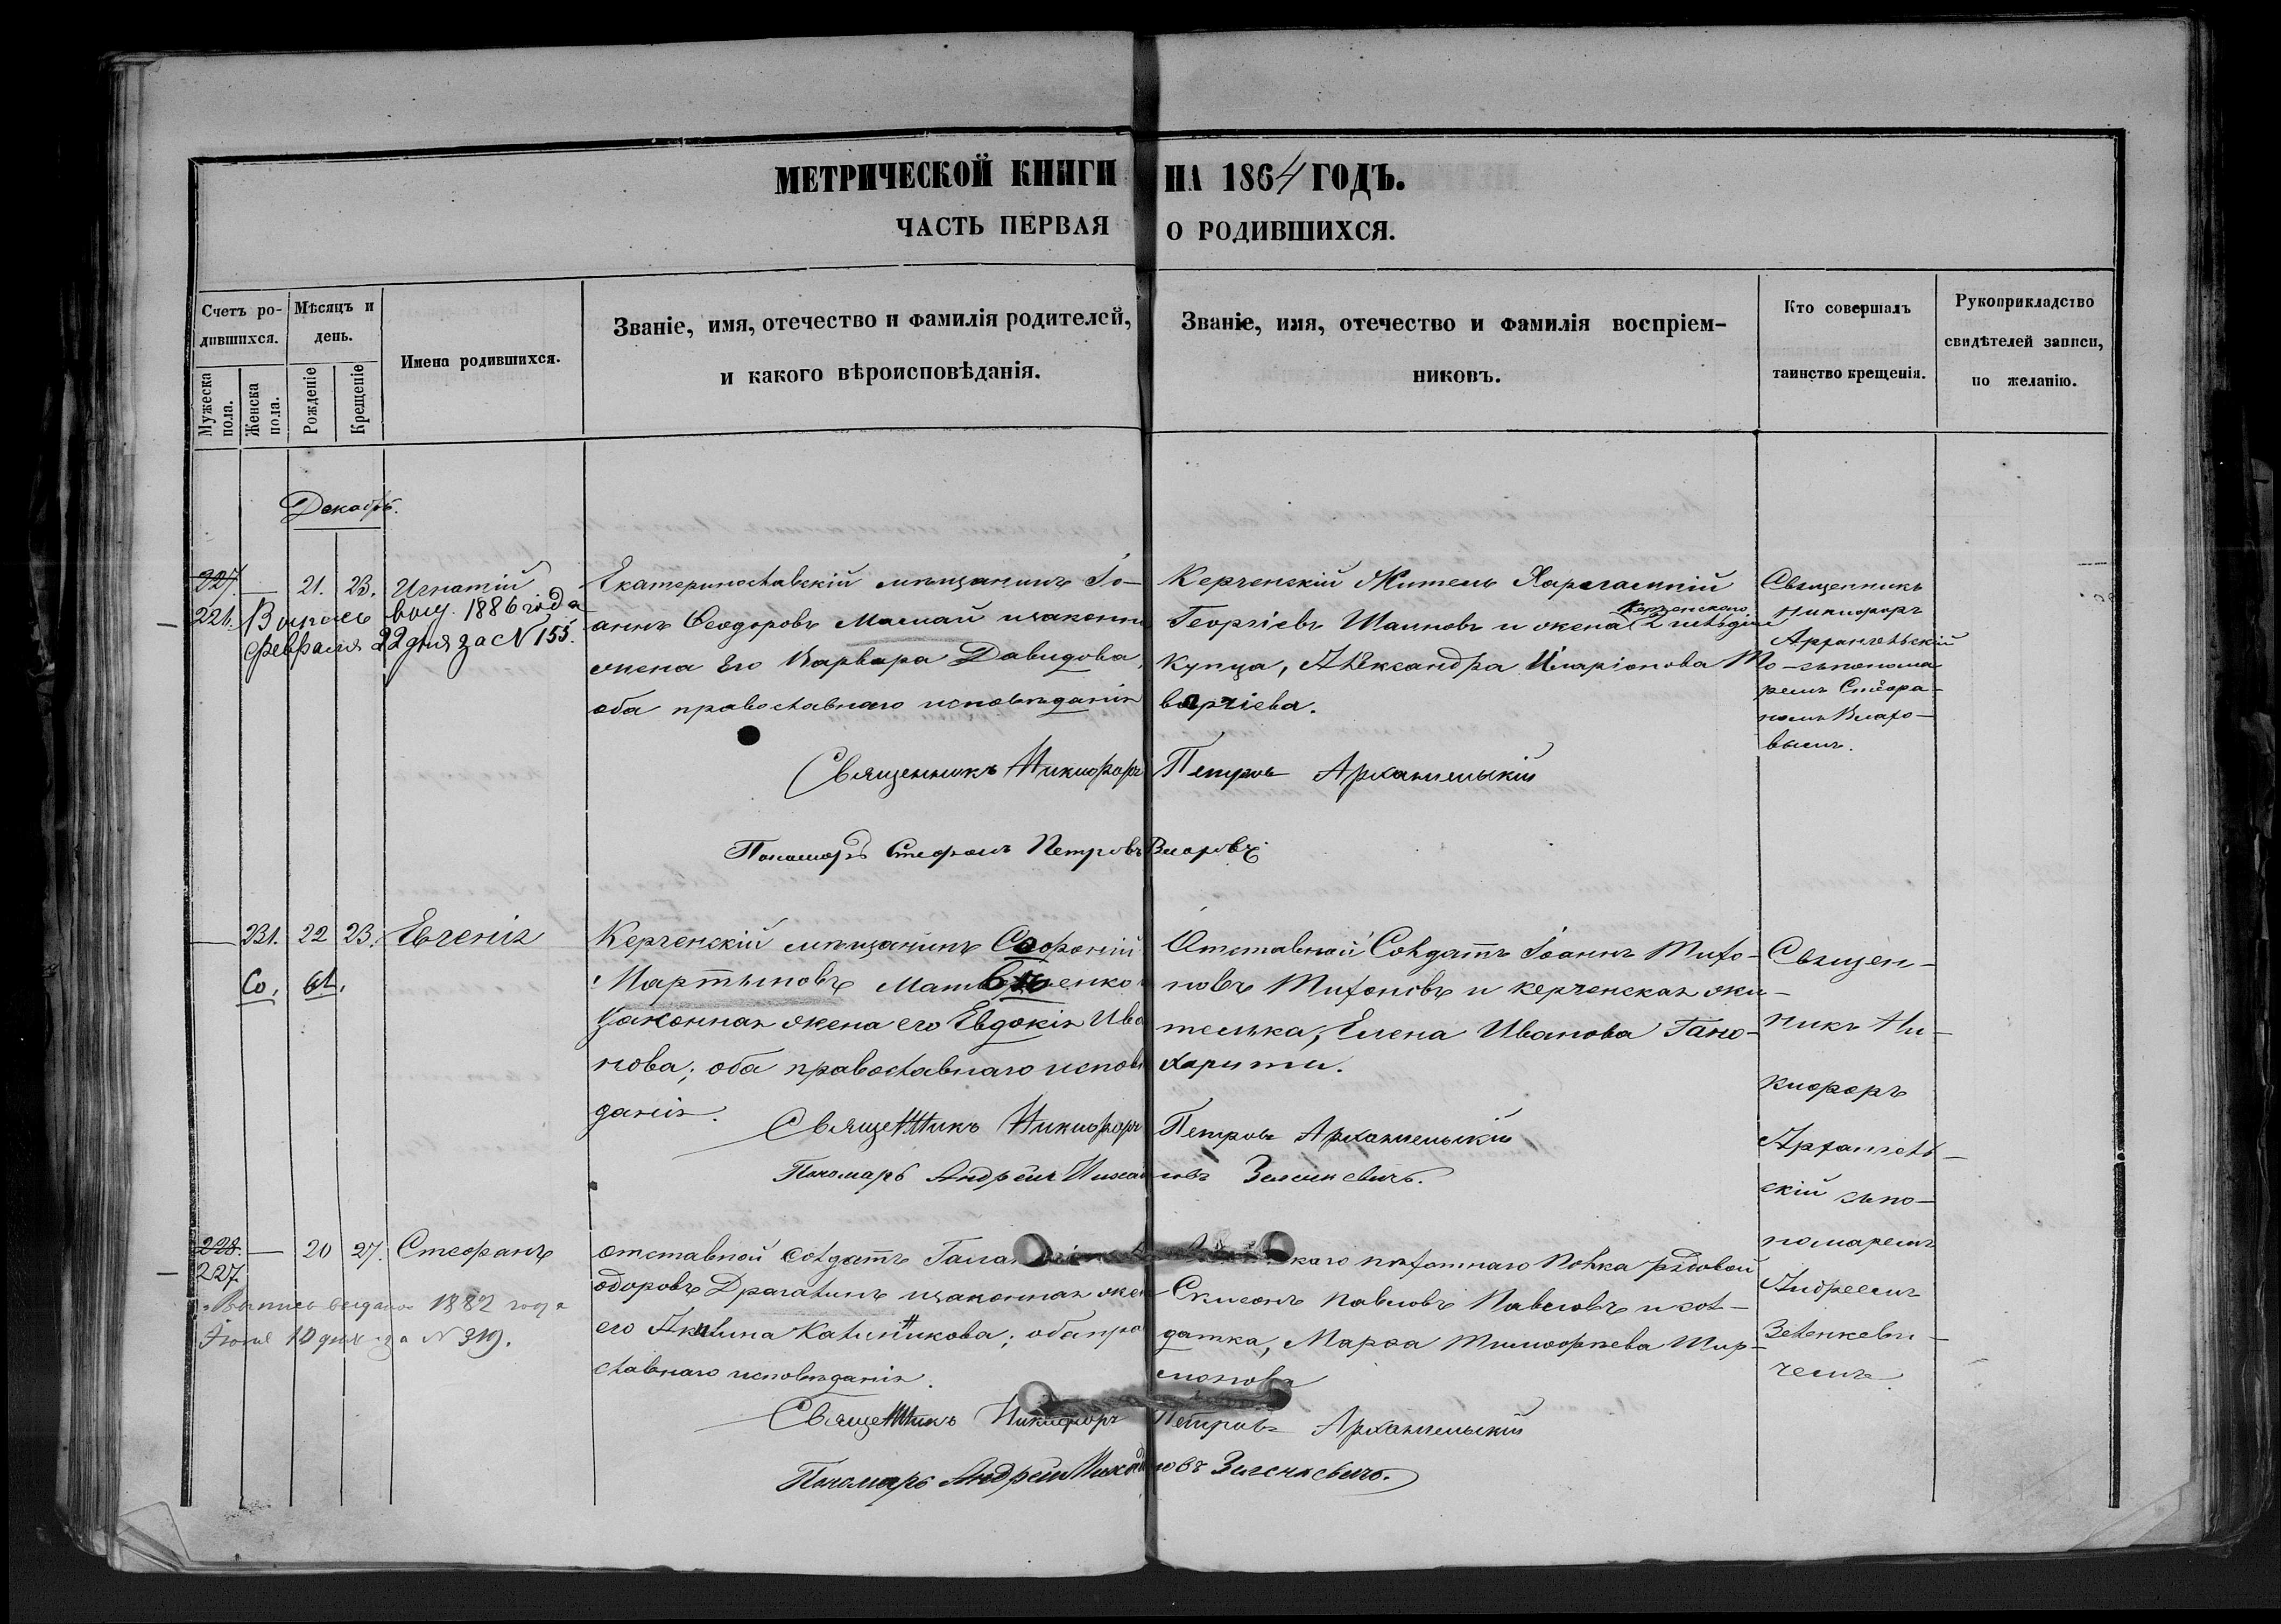 МЕТРИЧЕСКОЙ КНИГИ НА 1864 ГОДЪ.
ЧАСТЬ ПЕРВАЯ О РОДИВШИХСЯ.
Счетъ родившихся.
Мужеска пола.
Женска пола.
Мѣсяцъ и день.
Рожденіе
Крещеніе
Имена родившихся.
Званіе, имя, отечество и фамилія родителей,
и какого вѣроисповѣданія.
Званіе, имя, отечество и фамилія воспріем-
никовъ.
Кто совершалъ
таинство крещенія.
Рукоприкладство
свидѣтелей записи,
по желанію.
Декабрь.
227. — 21. 23. Игнатій
221. Выпись выд. 1886 года
февраля 22 дня за № 155.
Екатеринославскій мѣщанинъ Іо-
аннъ Ѳеодоровъ и законн
жена Его Варвара Давидова,
оба православнаго исповѣданія
Керченскій Житель Харлампій
Георгіевъ и жена Керченскаго 2 гильдіи
купца, Александра Иларіонова
Священникъ
Никифоръ
Архангельскій
съ понома
ремъ Стефа-
номъ
Священникъ Никифоръ Петровъ Архангельскій
Пономарь Стефанъ Петровъ
231. 22 23. Евгенія
Со. 61.
Керченскій мѣщанинъ Софоній
Мартыновъ
Законная жена его Евдокія Ива
нова; оба православнаго исповѣ
данія.
Отставной Солдатъ Іоаннъ Тихо-
новъ Тихоновъ и керченская жи-
телька, Елена Иванова
Священ-
никъ Ни-
кифоръ
Архангель-
скій съ по-
номаремъ
Андреемъ
Зеленкеви-
чемъ
Священникъ Никифоръ Петровъ Архангельскій
Пономарь Андрей Михайловъ Зеленкевичъ.
228. — 20 27. Стефанъ
227
Выпись выдана 1882 года
Іюня 10 дня за № 319.
отставной солдатъ
одоровъ Драгалинъ и законная жен
его Акилина Калинникова; оба пра
славнаго исповѣданія.
скаго пѣхотнаго Полка рядовой
Павловъ Павловъ и сол-
датка, Марѳа Тимоѳеева
Священникъ Никифоръ Петровъ Архангельскій
Пономарь Андрей Михайловъ Зеленкевичъ.